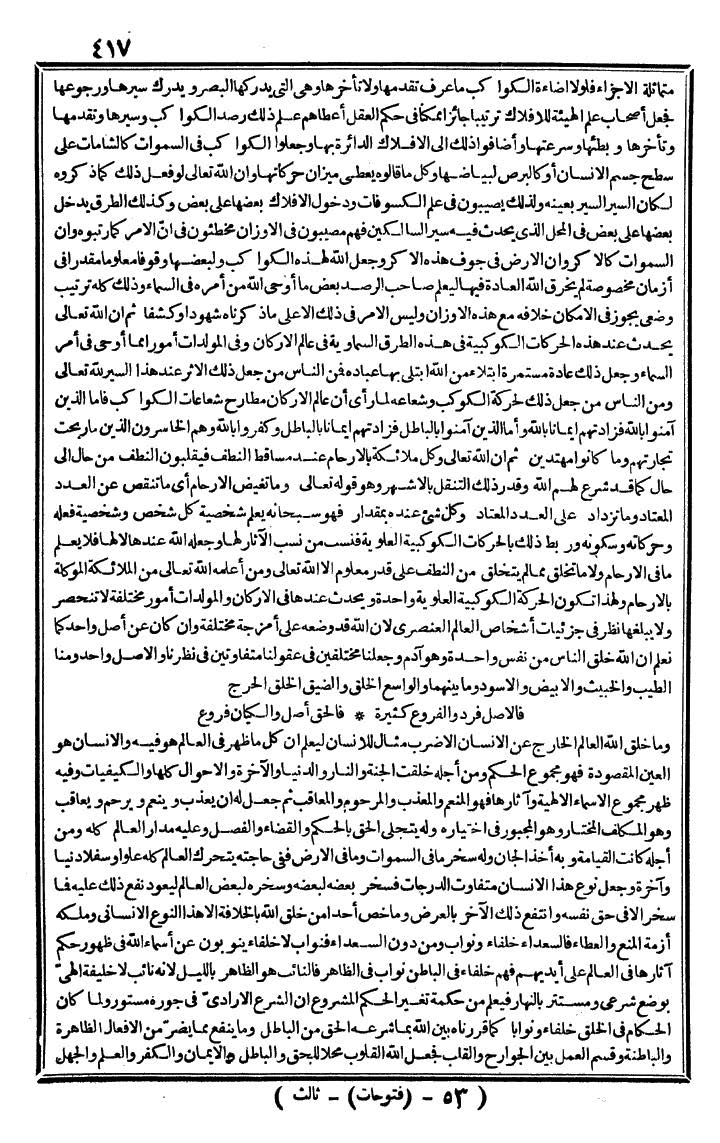 ٤١٧
متماثلة الاجزاء فلولا اضاءة الكواكب ما عرف تقدمها ولا تأخرها وهى التى يدركها البصر ويدرك سيرها ورجوعها
فجعل أصحاب علم الهيئة للافلاك ترتيبا جائزا ممكنا فى حكم العقل أعطاهم علم ذلك رصد الكواكب وسيرها وتقدمها
وتأخرها وبطئها وسرعتها وأضافوا ذلك الى الافلاك الدائرة بها وجعلوا الكواكب فى السموات كالشامات على
سطح جسم الانسان أو كالبرص لبياضها وكل ما قالوه يعطى ميزان حركاتها وان الله تعالى لو فعل ذلك كما ذكروه
لكان السير السير بعينه ولذلك يصيبون فى علم الكسوفات ودخول الافلاك بعضها على بعض وكذلك الطرق يدخل
بعضها على بعض فى المحل الذى يحدث فيه سير السالكين فهم مصيبون فى الاوزان مخطئون فى انّ الامر كما رتبوه وان
السموات كالاكر وان الارض فى جوف هذه الاكر وجعل الله لهذه الكواكب ولبعضها وقوفا معلوما مقدرا فى
أزمان مخصوصة لم يخرق الله العادة فيها ليعلم صاحب الرصد بعض ما أوحى الله من أمره فى السماء وذلك كله ترتيب
وضعى يجوز فى الامكان خلافه مع هذه الاوزان وليس الامر فى ذلك الا على ما ذكرناه شهودا وكشفا ثم ان الله تعالى
يحدث عند هذه الحركات الكوكبية فى هذه الطرق السماوية فى عالم الاركان وفى المولدات أمورا مما أوحى فى أمر
السماء وجعل ذلك عادة مستمرة ابتلاء من الله ابتلى بها عباده فمن الناس من جعل ذلك الاثر عند هذا السير لله تعالى
ومن الناس من جعل ذلك لحركة الكوكب وشعاعه لما رأى أن عالم الاركان مطارح شعاعات الكواكب فاما الذين
آمنوا بالله فزادتهم ايمانا بالله وأما الذين آمنوا بالباطل فزادتهم ايمانا بالباطل وكفروا بالله وهم الخاسرون الذين ما ربحت
تجارتهم وما كانوا مهتدين ثم ان الله تعالى وكل ملائكة بالارحام عند مساقط النطف فيقلبون النطف من حال الى
حال كما قد شرع لهم الله وقدر ذلك التنقل بالاشهر وهو قوله تعالى وما تغيض الارحام أى ما تنقص عن العدد
المعتاد وما تزداد على العدد المعتاد وكل شئ عنده بمقدار فهو سبحانه يعلم شخصية كل شخص وشخصية فعله
وحركاته وسكونه وربط ذلك بالحركات الكوكبية العلوية فنسب من نسب الآثار لها وجعله الله عندها لا لها فلا يعلم
ما فى الارحام ولا ما تخلق مما لم يتخلق من النطف على قدر معلوم الا الله تعالى ومن أعلمه الله تعالى من الملائكة الموكلة
بالارحام ولهذا تكون الحركة الكوكبية العلوية واحدة ويحدث عندها فى الاركان والمولدات أمور مختلفة لا تنحصر
ولا يبلغها نظر فى جزئيات أشخاص العالم العنصرى لان الله قد وضعه على أمزجة مختلفة وان كان عن أصل واحد كما
نعلم ان الله خلق الناس من نفس واحدة وهو آدم وجعلنا مختلفين فى عقولنا متفاوتين فى نظرنا والاصل واحد ومنا
الطيب والخبيث والابيض والاسود وما بينهما والواسع الخلق والضيق الخلق الحرج
فالاصل فرد والفروع كثيرة * فالحق أصل والكيان فروع
وما خلق الله العالم الخارج عن الانسان الا ضرب مثال للانسان ليعلم ان كل ما ظهر فى العالم هو فيه والانسان هو
العين المقصودة فهو مجموع الحكم ومن أجله خلقت الجنة والنار والدنيا والآخرة والاحوال كلها والكيفيات وفيه
ظهر مجموع الاسماء الالهية وآثارها فهو المنعم والمعذب والمرحوم والمعاقب ثم جعل له ان يعذب وينعم ويرحم ويعاقب
وهو المكلف المختار وهو المجبور فى اختياره وله يتجلى الحق بالحكم والقضاء والفصل وعليه مدار العالم كله ومن
أجله كانت القيامة وبه أخذ الجان وله سخر ما فى السموات وما فى الارض ففى حاجته يتحرك العالم كله علوا وسفلا دنيا
وآخرة وجعل نوع هذا الانسان متفاوت الدرجات فسخر بعضه لبعضه وسخره لبعض العالم ليعود نفع ذلك عليه فما
سخر الا فى حق نفسه وانتفع ذلك الآخر بالعرض وما خص أحدا من خلق الله بالخلافة الا هذا النوع الانسانى وملكه
أزمة المنع والعطاء فالسعداء خلفاء ونواب ومن دون السعداء فنواب لا خلفاء ينوبون عن أسماء الله فى ظهور حكم
آثارها فى العالم على أيديهم فهم خلفاء فى الباطن نواب فى الظاهر فالنائب هو الظاهر بالليل لانه نائب لا خليفة الهىّ
بوضع شرعى ومستتر بالنهار فيعلم من حكمة تغيير الحكم المشروع ان الشرع الارادىّ فى جوره مستور ولما كان
الحكام فى الخلق خلفاء ونوابا كما قررناه بين الله بما شرعه الحق من الباطل وما ينفع مما يضرّ من الافعال الظاهرة
والباطنة وقسم العمل بين الجوارح والقلب فجعل الله القلوب محلا للحق والباطل والايمان والكفر والعلم والجهل
( ٥٣ - (فتوحات) - ثالث )